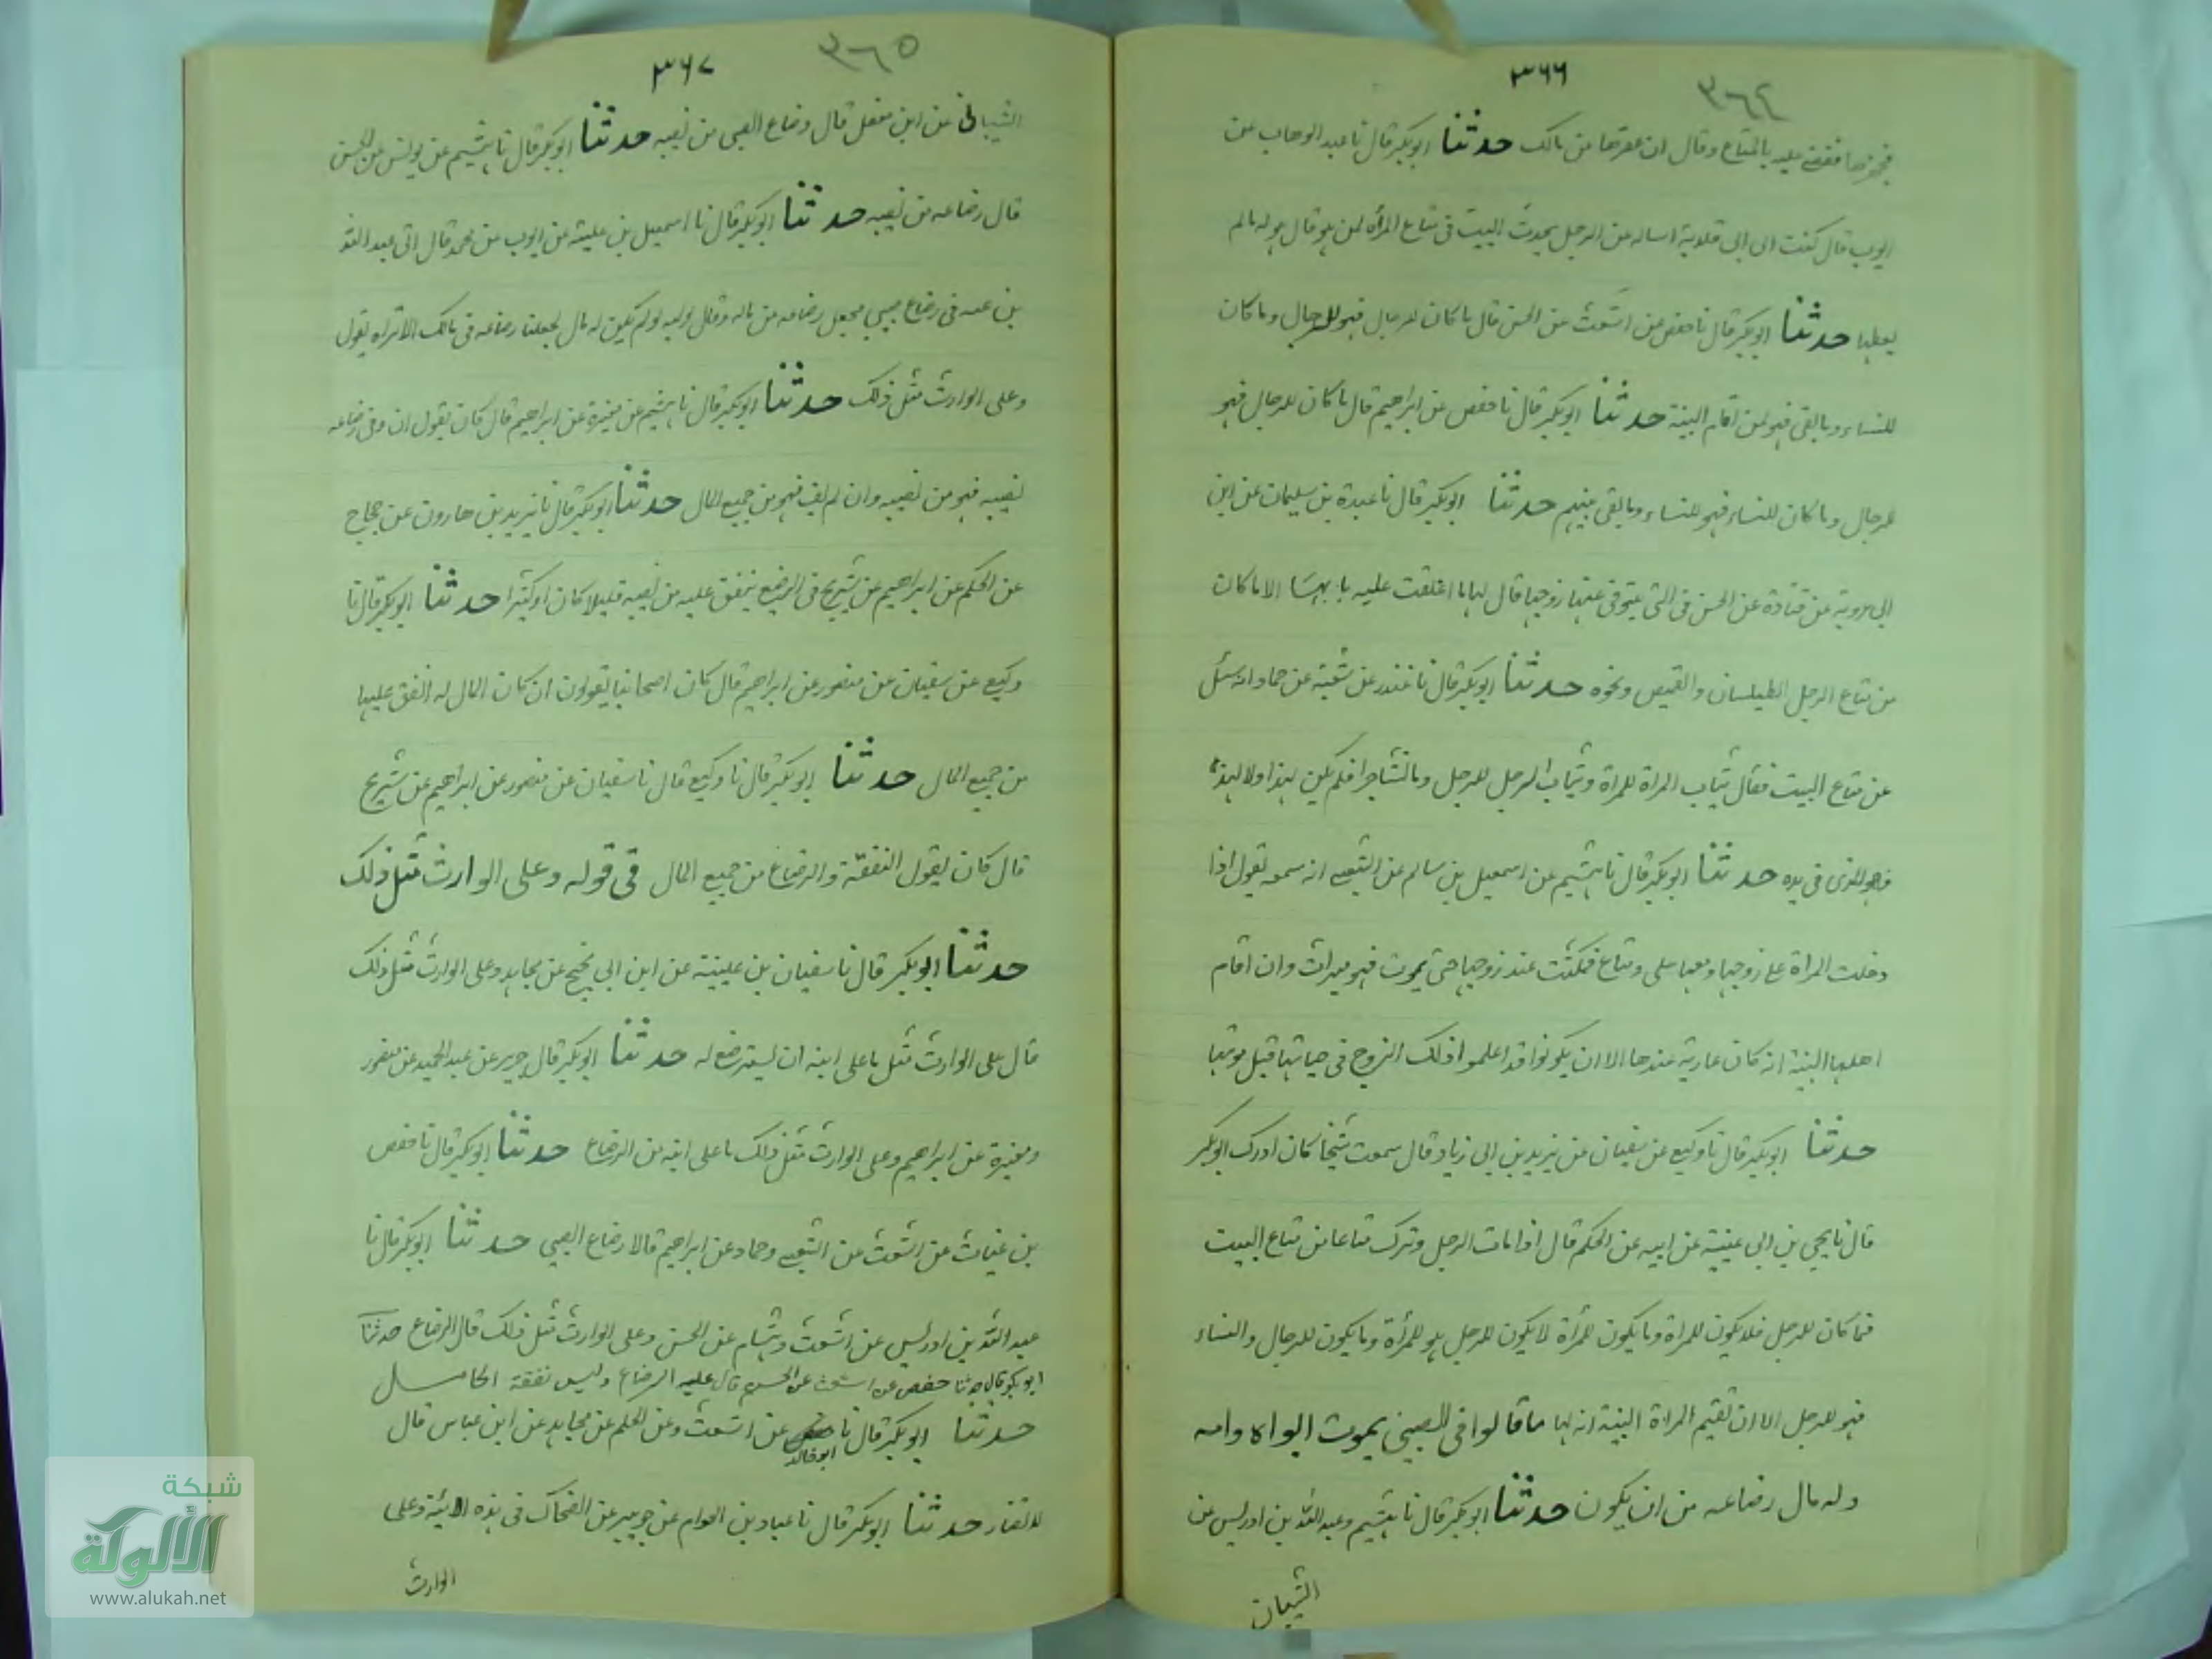 ٣٦٦
٣٦٤
عليه بالمتاع وقال ان من مالك حدثنا ابوبكر قال نا عبد الوهاب عن
ايوب قال كتبت الى ابى قلابة اساله عن الرجل يحدث البيت فى متاع المرأة لمن هو قال هو له مالم
يعطها حدثنا ابوبكر قال نا حفص عن اشعث عن الحسن قال ما كان للرجال فهو للرجال وما كان
للنساء وما بقى فهو لمن اقام البينة حدثنا ابوبكر قال نا حفص عن ابراهيم قال ما كان للرجال فهو
للرجال وما كان للنساء فهو للنساء وما بقى بينهم حدثنا ابوبكر قال نا عبدة بن سليمان عن ابن
ابى عروبة عن قتادة عن الحسن فى التى يتوفى عنها زوجها قال لها ما اغلقت عليه بابها الا ما كان
من متاع الرجل الطيلسان والقميص ونحوه حدثنا ابوبكر قال نا غندر عن شعبة عن حماد انه سئل
عن متاع البيت فقال ثياب المراة للمراة وثياب الرجل للرجل وما تشاجرا فلم يكن لهذا ولا لهذه
فهو للذى فى يده حدثنا ابوبكر قال نا هشيم عن اسمعيل بن سالم عن الشعبى انه سمعه يقول اذا
دخلت المراة على زوجها ومعها حلى ومتاع فمكثت عند زوجها حتى يموت فهو ميراث وان اقام
اهلها البينة انه كان عارية عندها الا ان يكونوا قد اعلموا ذلك الزوج فى حياتها قبل موتها
حدثنا ابوبكر قال نا وكيع عن سفيان عن يزيد بن ابى زياد قال سمعت شيخا كان ادرك ابوبكر
قال نا يحيى بن ابى غنية عن ابيه عن الحكم قال اذا مات الرجل وترك متاعا من متاع البيت
فما كان للرجل فلا يكون للمراة وما يكون للمرأة لا يكون للرجل هو للمرأة وما يكون للرجال والنساء
فهو للرجل الا ان تقيم المراة البينة انه لها ما قالوا فى الصبى يموت ابواه وامه
وله مال رضاعه من ان يكون حدثنا ابوبكر قال نا هشيم وعبد الله بن ادريس عن
الشيبان
٣٦٧
٣٦٥
الشيبانى عن ابن مغفل قال رضاع الصبى من نصيبه حدثنا ابوبكر قال نا هشيم عن يونس عن الحسن
قال رضاعه من نصيبه حدثنا ابوبكر قال نا اسمعيل بن علية عن ايوب عن محمد قال اتى عبد الله
بن عتبه فى رضاع صبى فجعل رضاعه من ماله وقال لوليه لو لم يكن له مال لجعلنا رضاعه فى مالك الا تراه يقول
وعلى الوارث مثل ذلك حدثنا ابوبكر قال نا هشيم عن مغيرة عن ابراهيم قال كان يقول ان وفى رضاعه
نصيبه فهو من نصيبه وان لم يف فهو من جميع المال حدثنا ابوبكر قال نا يزيد بن هارون عن حجاج
عن الحكم عن ابراهيم عن شريح فى الرضيع ينفق عليه من نصيبه قليلا كان او كثيرا حدثنا ابوبكر قال نا
وكيع عن سفيان عن منصور عن ابراهيم قال كان اصحابنا يقولون ان كان المال له انفق عليها
من جميع المال حدثنا ابوبكر قال نا وكيع قال نا سفيان عن منصور عن ابراهيم عن شريح
قال كان يقول النفقة والرضاع من جميع المال فى قوله وعلى الوارث مثل ذلك
حدثنا ابوبكر قال نا سفيان بن عيينة عن ابن ابى نجيح عن مجاهد وعلى الوارث مثل ذلك
قال على الوارث مثل ما على ابيه ان يسترضع له حدثنا ابوبكر قال جرير عن عبد الحميد عن منصور
ومغيرة عن ابراهيم وعلى الوارث مثل ذلك ما على ابيه من الرضاع حدثنا ابوبكر قال نا حفص
بن غياث عن اشعث عن الشعبى وحماد عن ابراهيم قالا رضاع الصبى حدثنا ابوبكر قال نا
عبد الله بن ادريس عن اشعث وهشام عن الحسن وعلى الوارث مثل ذلك قال الرضاع حدثنا
ابو بكر قال حدثنا حفص عن اشعث عن الحسن قال عليه الرضاع وليس نفقة الحامل
حدثنا ابوبكر قال نا ابو خالد عن اشعث وعن الحكم عن مجاهد عن ابن عباس قال
لا تضار حدثنا ابوبكر قال نا عباد بن العوام عن جويبر عن الضحاك فى هذه الاية وعلى
الوارث
شبكة
الألوكة
www.alukah.net